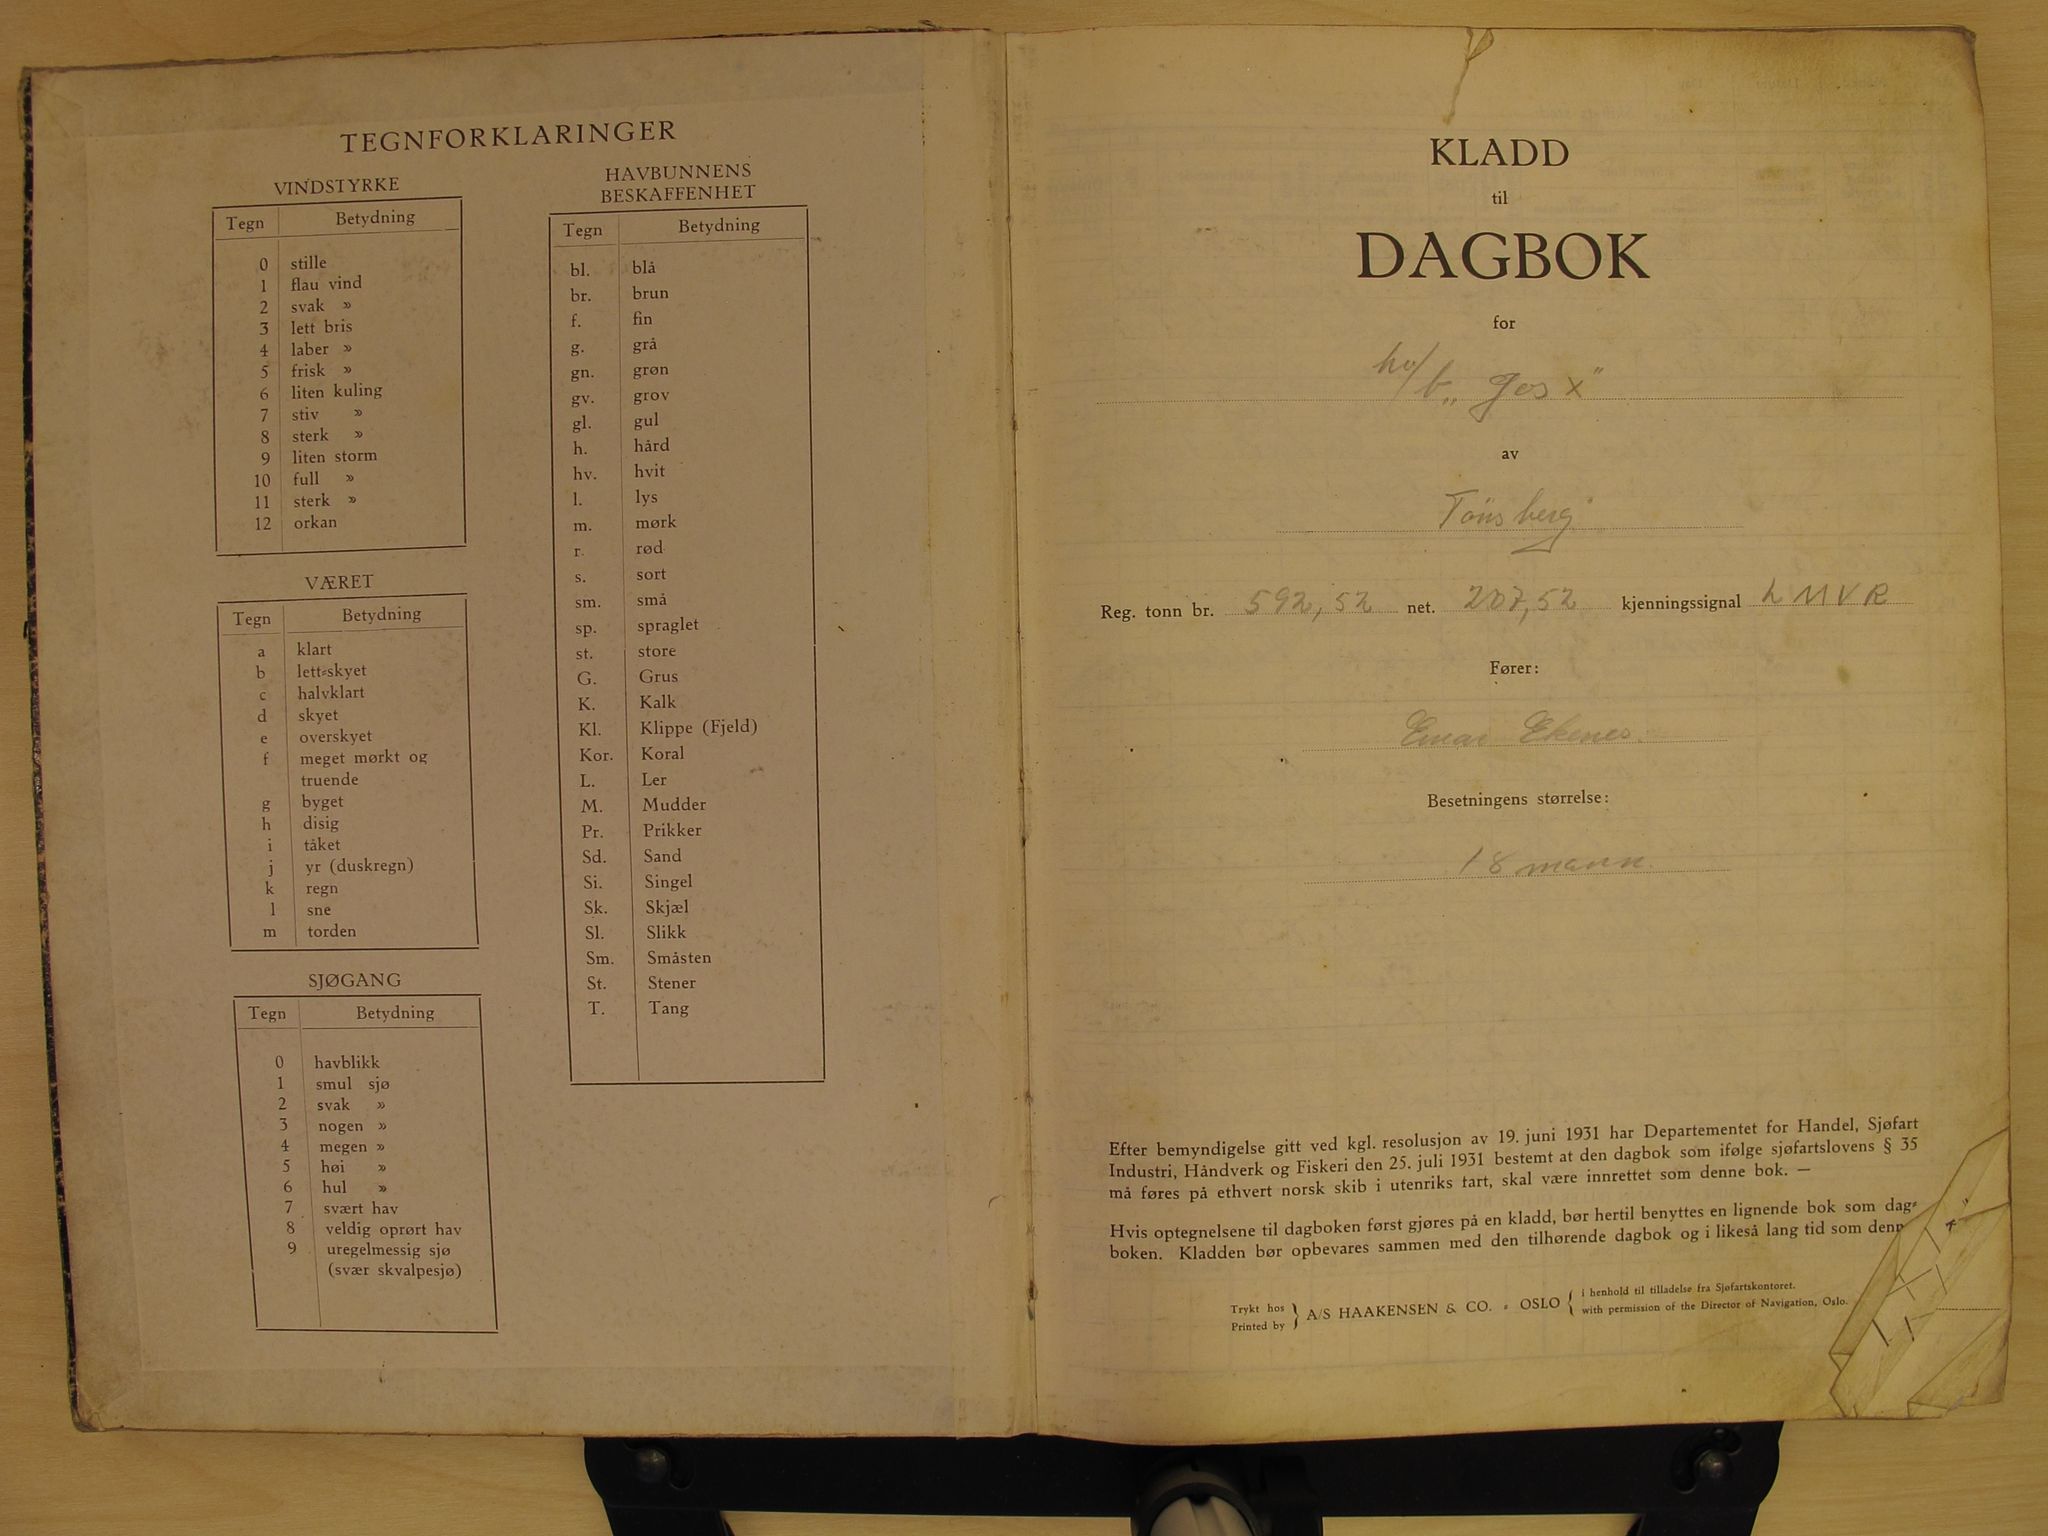 TEGNFORKLARINGER
VINDSTYRKE
Tegn Betydning
0 stille
1 flau vind
2 svak »
3 lett bris
4 laber »
5 frisk »
6 liten kuling
7 stiv »
8 sterk »
9 liten storm
10 full »
11 sterk »
12 orkan
VÆRET
Tegn Betydning
a klart
b lett-skyet
c halvklart
d skyet
e overskyet
f meget mørkt og
truende
g byget
h disig
i tåket
j yr (duskregn)
k regn
l sne
m torden
SJØGANG
Tegn Betydning
0 havblikk
1 smul sjø
2 svak »
3 nogen »
4 megen »
5 høi »
6 hul »
7 svært hav
8 veldig oprørt hav
9 uregelmessig sjø
(svær skvalpesjø)
HAVBUNNENS
BESKAFFENHET
Tegn Betydning
bl. blå
br. brun
f. fin
g. grå
gn. grøn
gv. grov
gl. gul
h. hård
hv. hvit
l. lys
m. mørk
r. rød
s. sort
sm. små
sp. spraglet
st. store
G. Grus
K. Kalk
Kl. Klippe (Fjeld)
Kor. Koral
L. Ler
M. Mudder
Pr. Prikker
Sd. Sand
Si. Singel
Sk. Skjæl
Sl. Slikk
Sm. Småsten
St. Stener
T. Tang
KLADD
til
DAGBOK
for
hv/b „Gos X"
av
Tönsberg
Reg. tonn br. 592,52 net. 207,52 kjenningssignal LMVR
Fører:
Einar Ekenes.
Besetningens størrelse:
18 mann.
Efter bemyndigelse gitt ved kgl. resolusjon av 19. juni 1931 har Departementet for Handel, Sjøfart
Industri, Håndverk og Fiskeri den 25. juli 1931 bestemt at den dagbok som ifølge sjøfartslovens § 35
må føres på ethvert norsk skib i utenriks tart, skal være innrettet som denne bok. —
Hvis optegnelsene til dagboken først gjøres på en kladd, bør hertil benyttes en lignende bok som dag-
boken. Kladden bør opbevares sammen med den tilhørende dagbok og i likeså lang tid som denn
Trykt hos } A/S HAAKENSEN & CO. - OSLO { i henhold til tilladelse fra Sjøfartskontoret.
Printed by with permission of the Director of Navigation, Oslo.